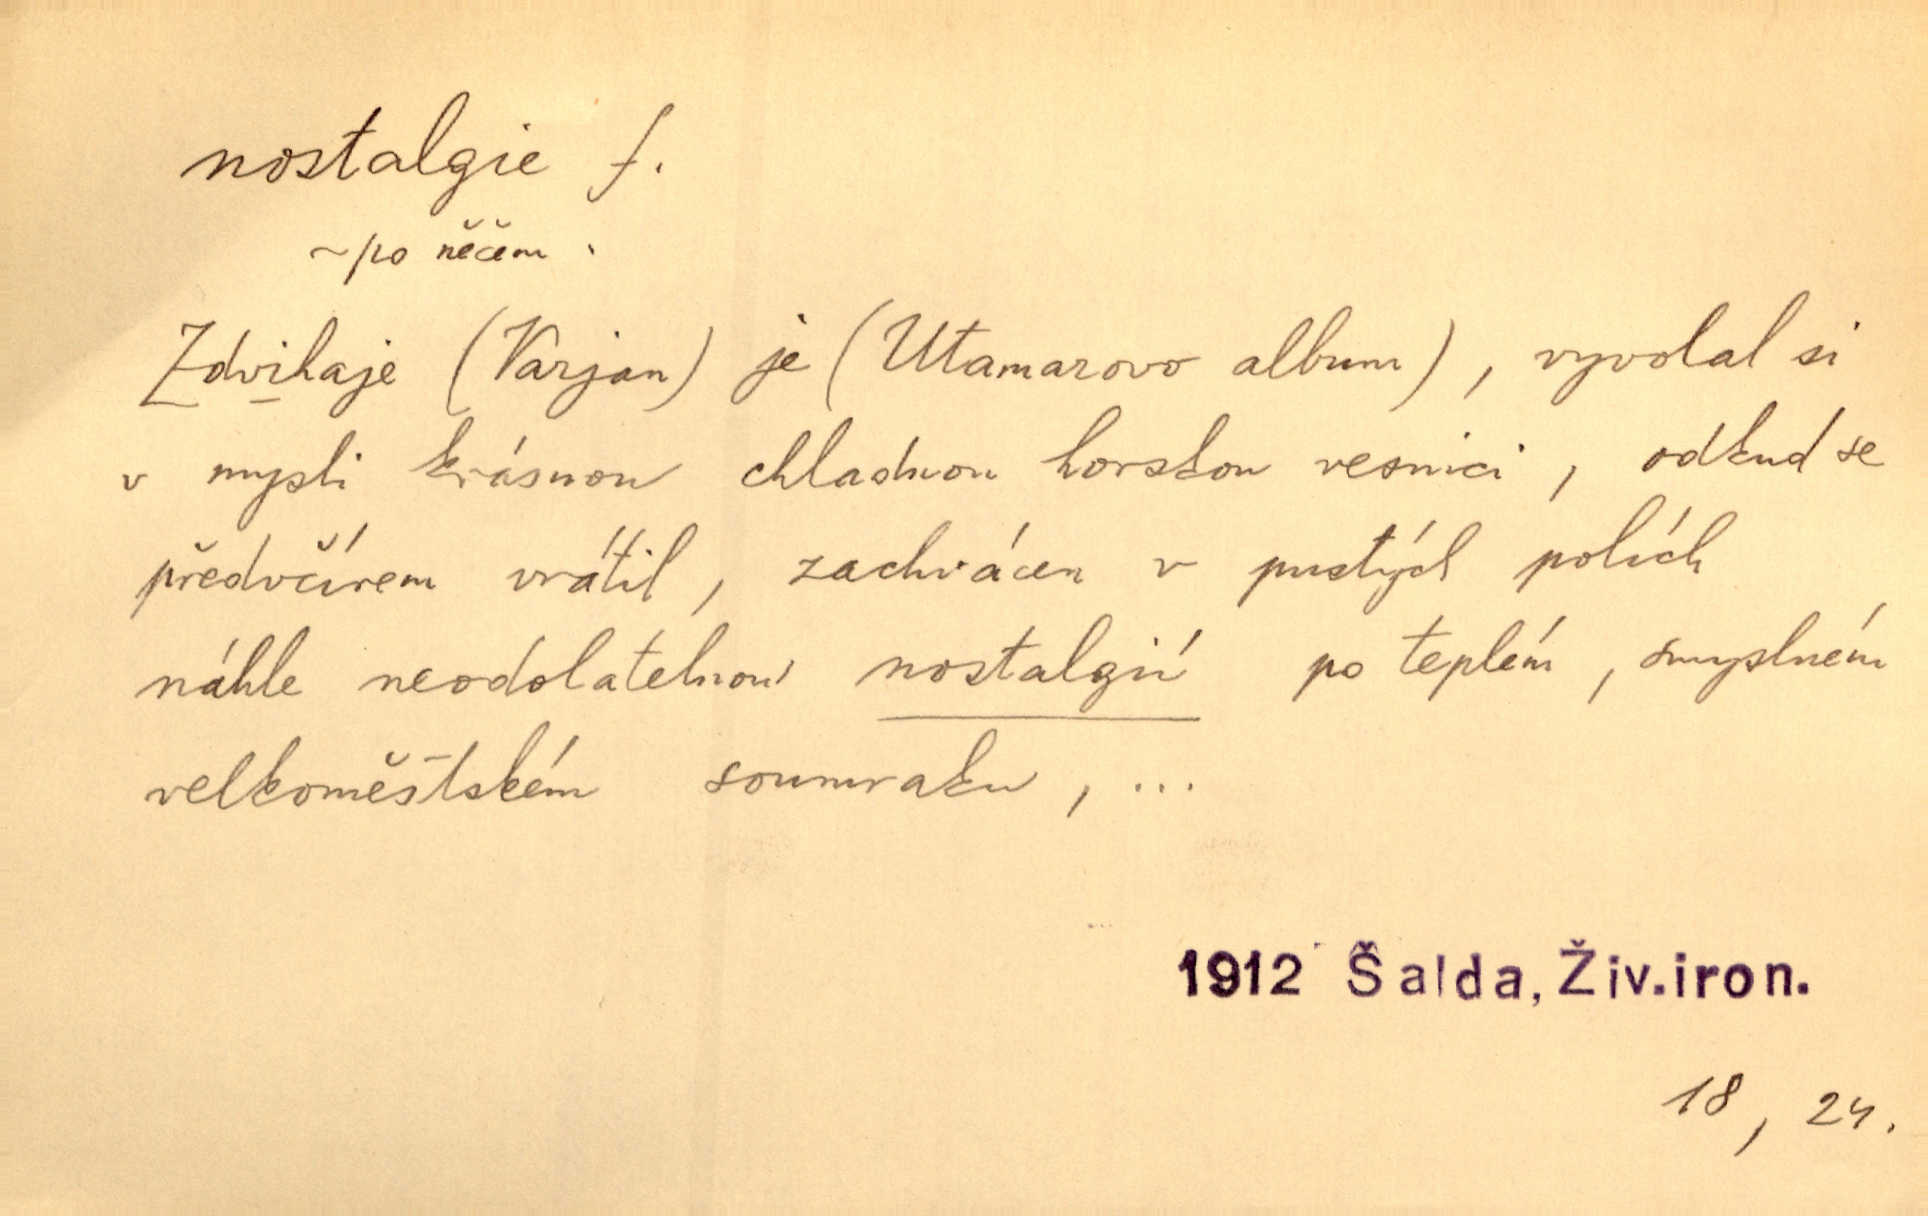 nostalgie f.
~ po něčem .
Zdvihaje (Varjan) je (Utamarovo album), vyvolal si
v mysli krásnou chladnou horskou vesnici, odkud se
předvčírem vrátil, zachvácen v pustých polích
náhle neodolatelnou nostalgií po teplém, smyslném
velkoměstském soumraku, ...
1912 Šalda, Živ.iron.
18, 24.